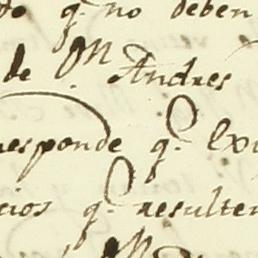 do q.^e no deben
de D.^n Andres
responde q.^e Exi
cios q.^e resulten